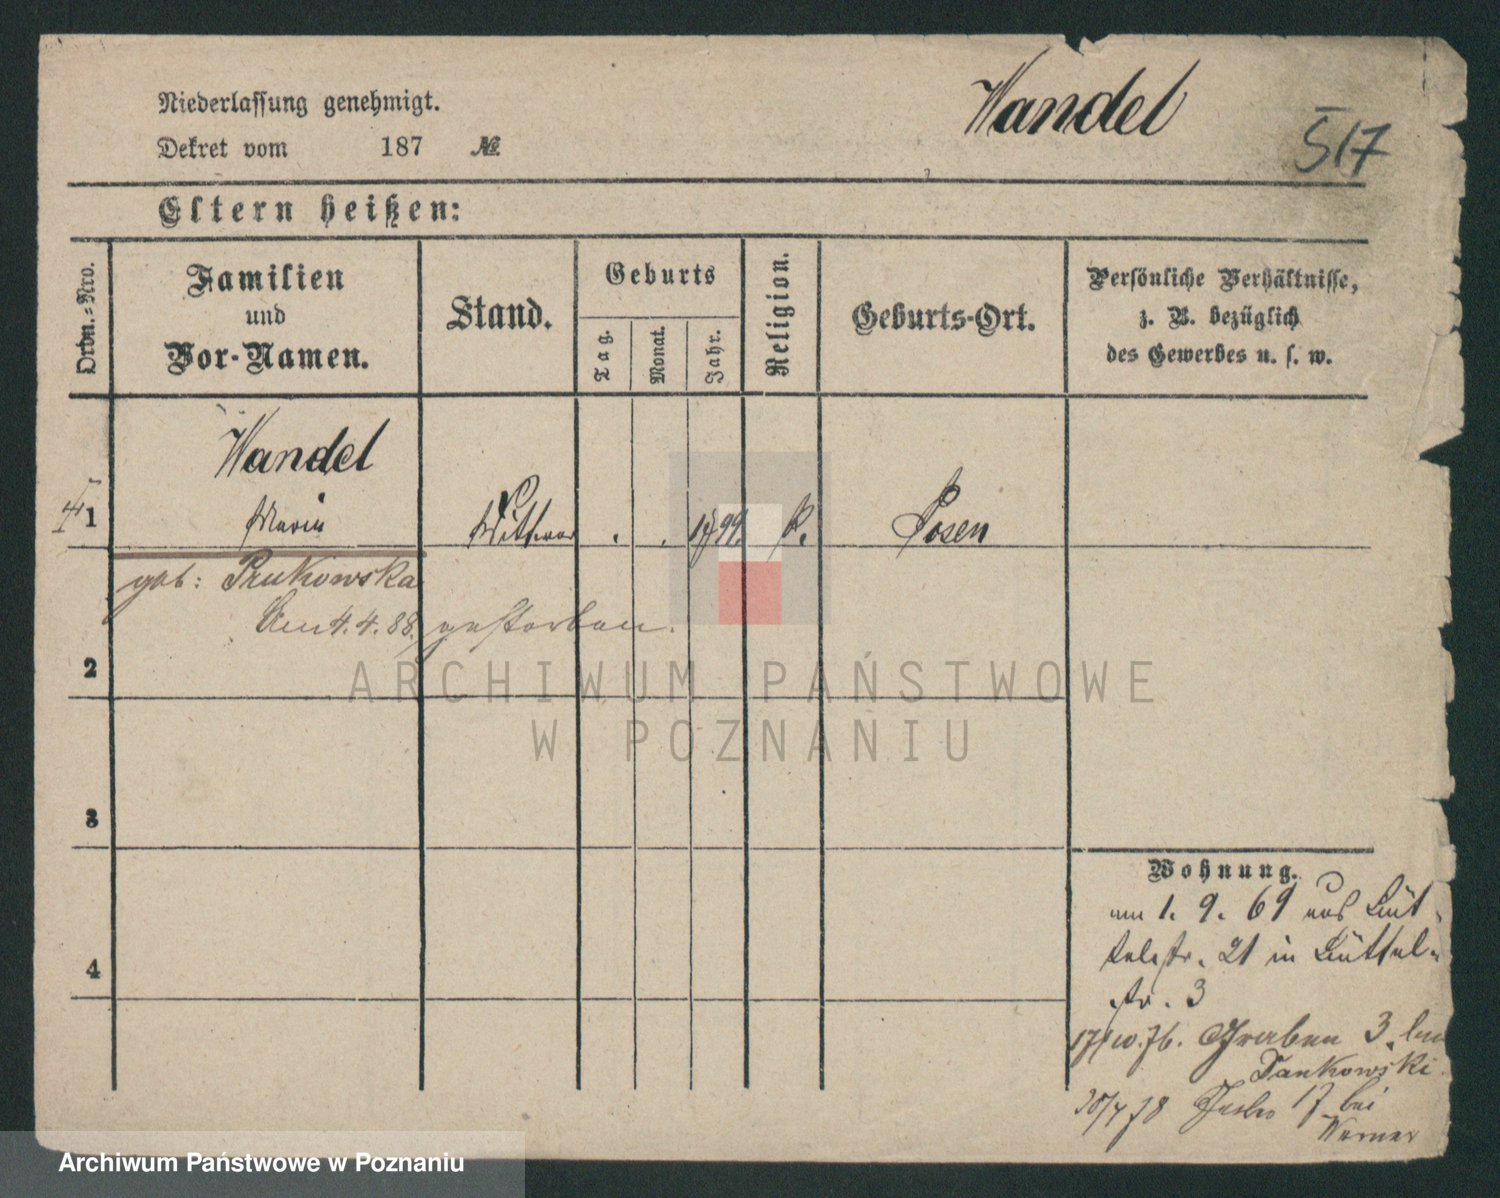 Wandel
517
Niederlassung genehmigt.
Dekret vom 187 №
Eltern heißen:
Ordn.-Nro.
Familien
und
Vor-Namen.
Stand.
Geburts
Tag.
Monat.
Jahr.
Religion.
Geburts-Ort.
Persönliche Verhältnisse,
z. B. bezüglich
des Gewerbes u. s. w.
Wandel
1 Maria Wittwe . . 1799. K. Posen
geb: Prukowska
Am 4.4.88. gestorben.
2
3
4
Wohnung.
am 1. 9. 69 aus Büt-
telstr. 21 in Büttel-
str. 3
17/10.76. Graben 3. bei
Tankowski
20/4 78 17 bei
Werner
ARCHIWUM PAŃSTWOWE
W POZNANIU
Archiwum Państwowe w Poznaniu